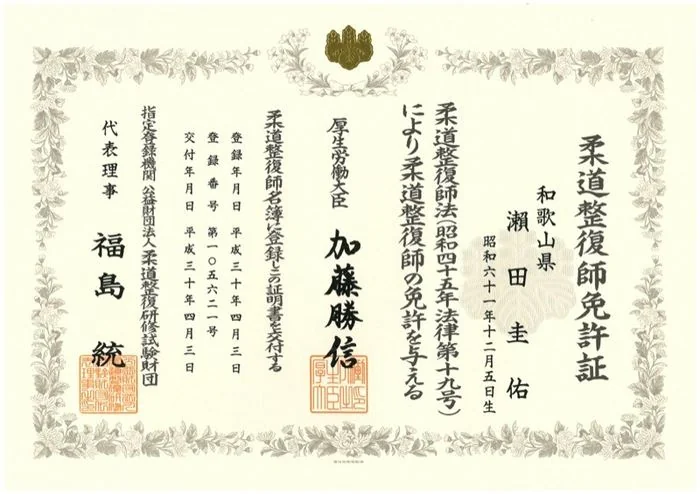 柔道整復師免許証
和歌山県
瀬田圭佑
昭和六十一年十二月五日生
柔道整復師法(昭和四十五年法律第十九号)
により柔道整復師の免許を与える
厚生労働大臣 加藤勝信
柔道整復師名簿に登録しこの証明書を交付する
登録年月日 平成三十年四月三日
登録番号 第一〇五六二一号
交付年月日 平成三十年四月三日
指定登録機関 公益財団法人柔道整復研修試験財団
代表理事 福島統